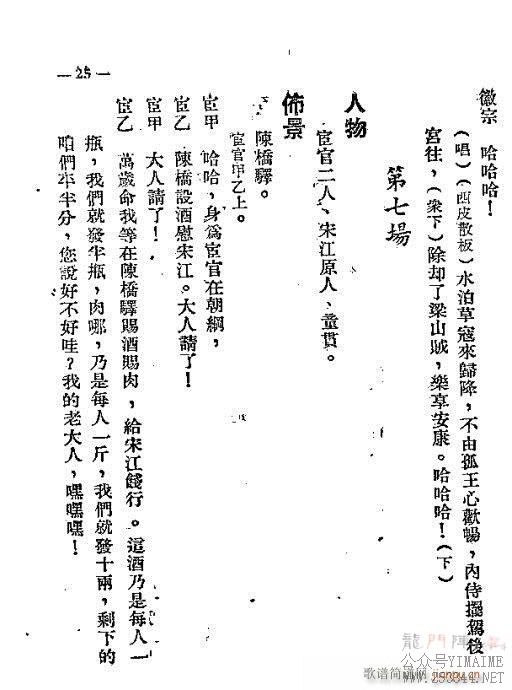 徽宗　哈哈哈！
（唱）（西皮散板）水泊草寇來歸降，不由孤王心歡暢，內侍擺駕後
宮往，（衆下）除却了梁山賊，樂享安康。哈哈哈！（下）
第七場
人物
宦官二人、宋江原人、童貫。
佈景
陳橋驛。
宦官甲乙上。
宦甲　哈哈，身爲宦官在朝綱，
宦乙　陳橋設酒慰宋江。大人請了！
宦甲　大人請了！
宦乙　萬歲命我等在陳橋驛賜酒賜肉，給宋江餞行。這酒乃是每人一
瓶，我們就發半瓶，肉哪，乃是每人一斤，我們就發十兩，剩下的
咱們平半分，您說好不好哇？我的老大人，嘿嘿嘿！
—25—
龍門陣
公众号YIMAIME
歌谱简谱网 jianpu.cn